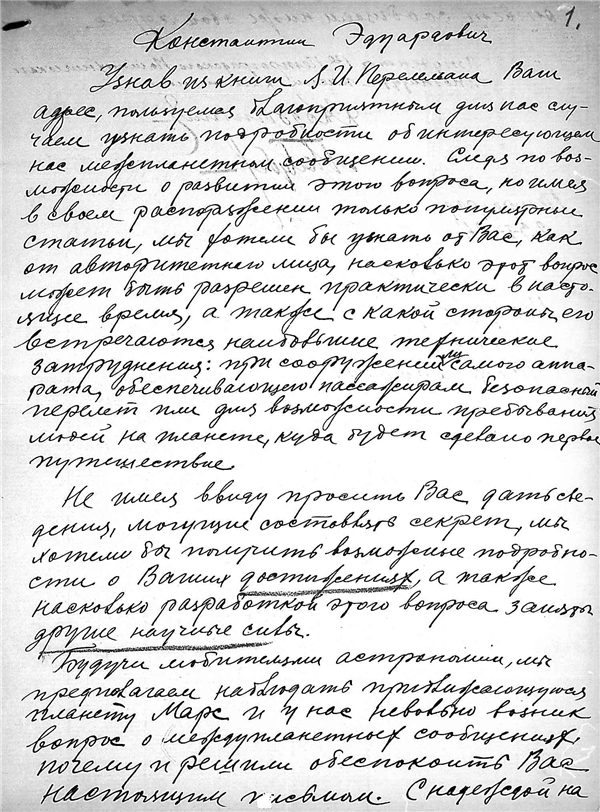 1.
Константин Эдуардович
Узнав из книги Я. И. Перельмана Ваш
адрес, пользуемся благоприятным для нас слу-
чаем узнать подробности об интересующем
нас межпланетном сообщении. Следя по воз-
можности о развитии этого вопроса, но имея
в своем распоряжении только популярные
статьи, мы хотели бы узнать от Вас, как
от авторитетного лица, насколько этот вопрос
может быть разрешен практически в насто-
ящее время, а также с какой стороны его
встречаются наибольшие технические
затруднения: при сооружении ли самого аппа-
рата, обеспечивающего пассажирам безопасный
перелет или для возможности пребывания
людей на планете, куда будет сделано первое
путешествие
Не имея ввиду просить Вас дать све-
дения, могущие составлять секрет, мы
хотели бы получить возможные подробно-
сти о Ваших достижениях, а также
насколько разработкой этого вопроса заняты
другие научные силы.
Будучи любителями астрономии, мы
предполагаем наблюдать приближающуюся
планету Марс и у нас невольно возник
вопрос о междупланетных сообщениях,
почему и решили обеспокоить Вас
настоящим письмом. С надеждой на